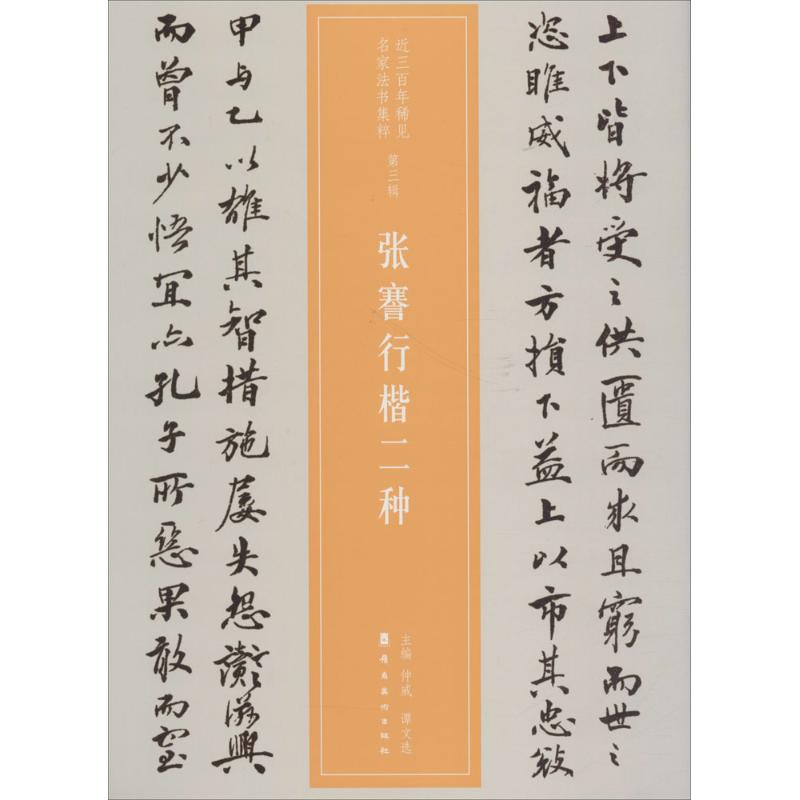 上下皆将受之供匮而求且穷而世之
恣睢威福者方损下益上以市其忠
近三百年稀见
名家法书集粹
第三辑
张謇行楷二种
主编 仲威 谭文选
岭南美术出版社
甲与乙以雄其智措施屡失怨讟滋興
而曾不少悟宜亦孔子所恶果敢而窒